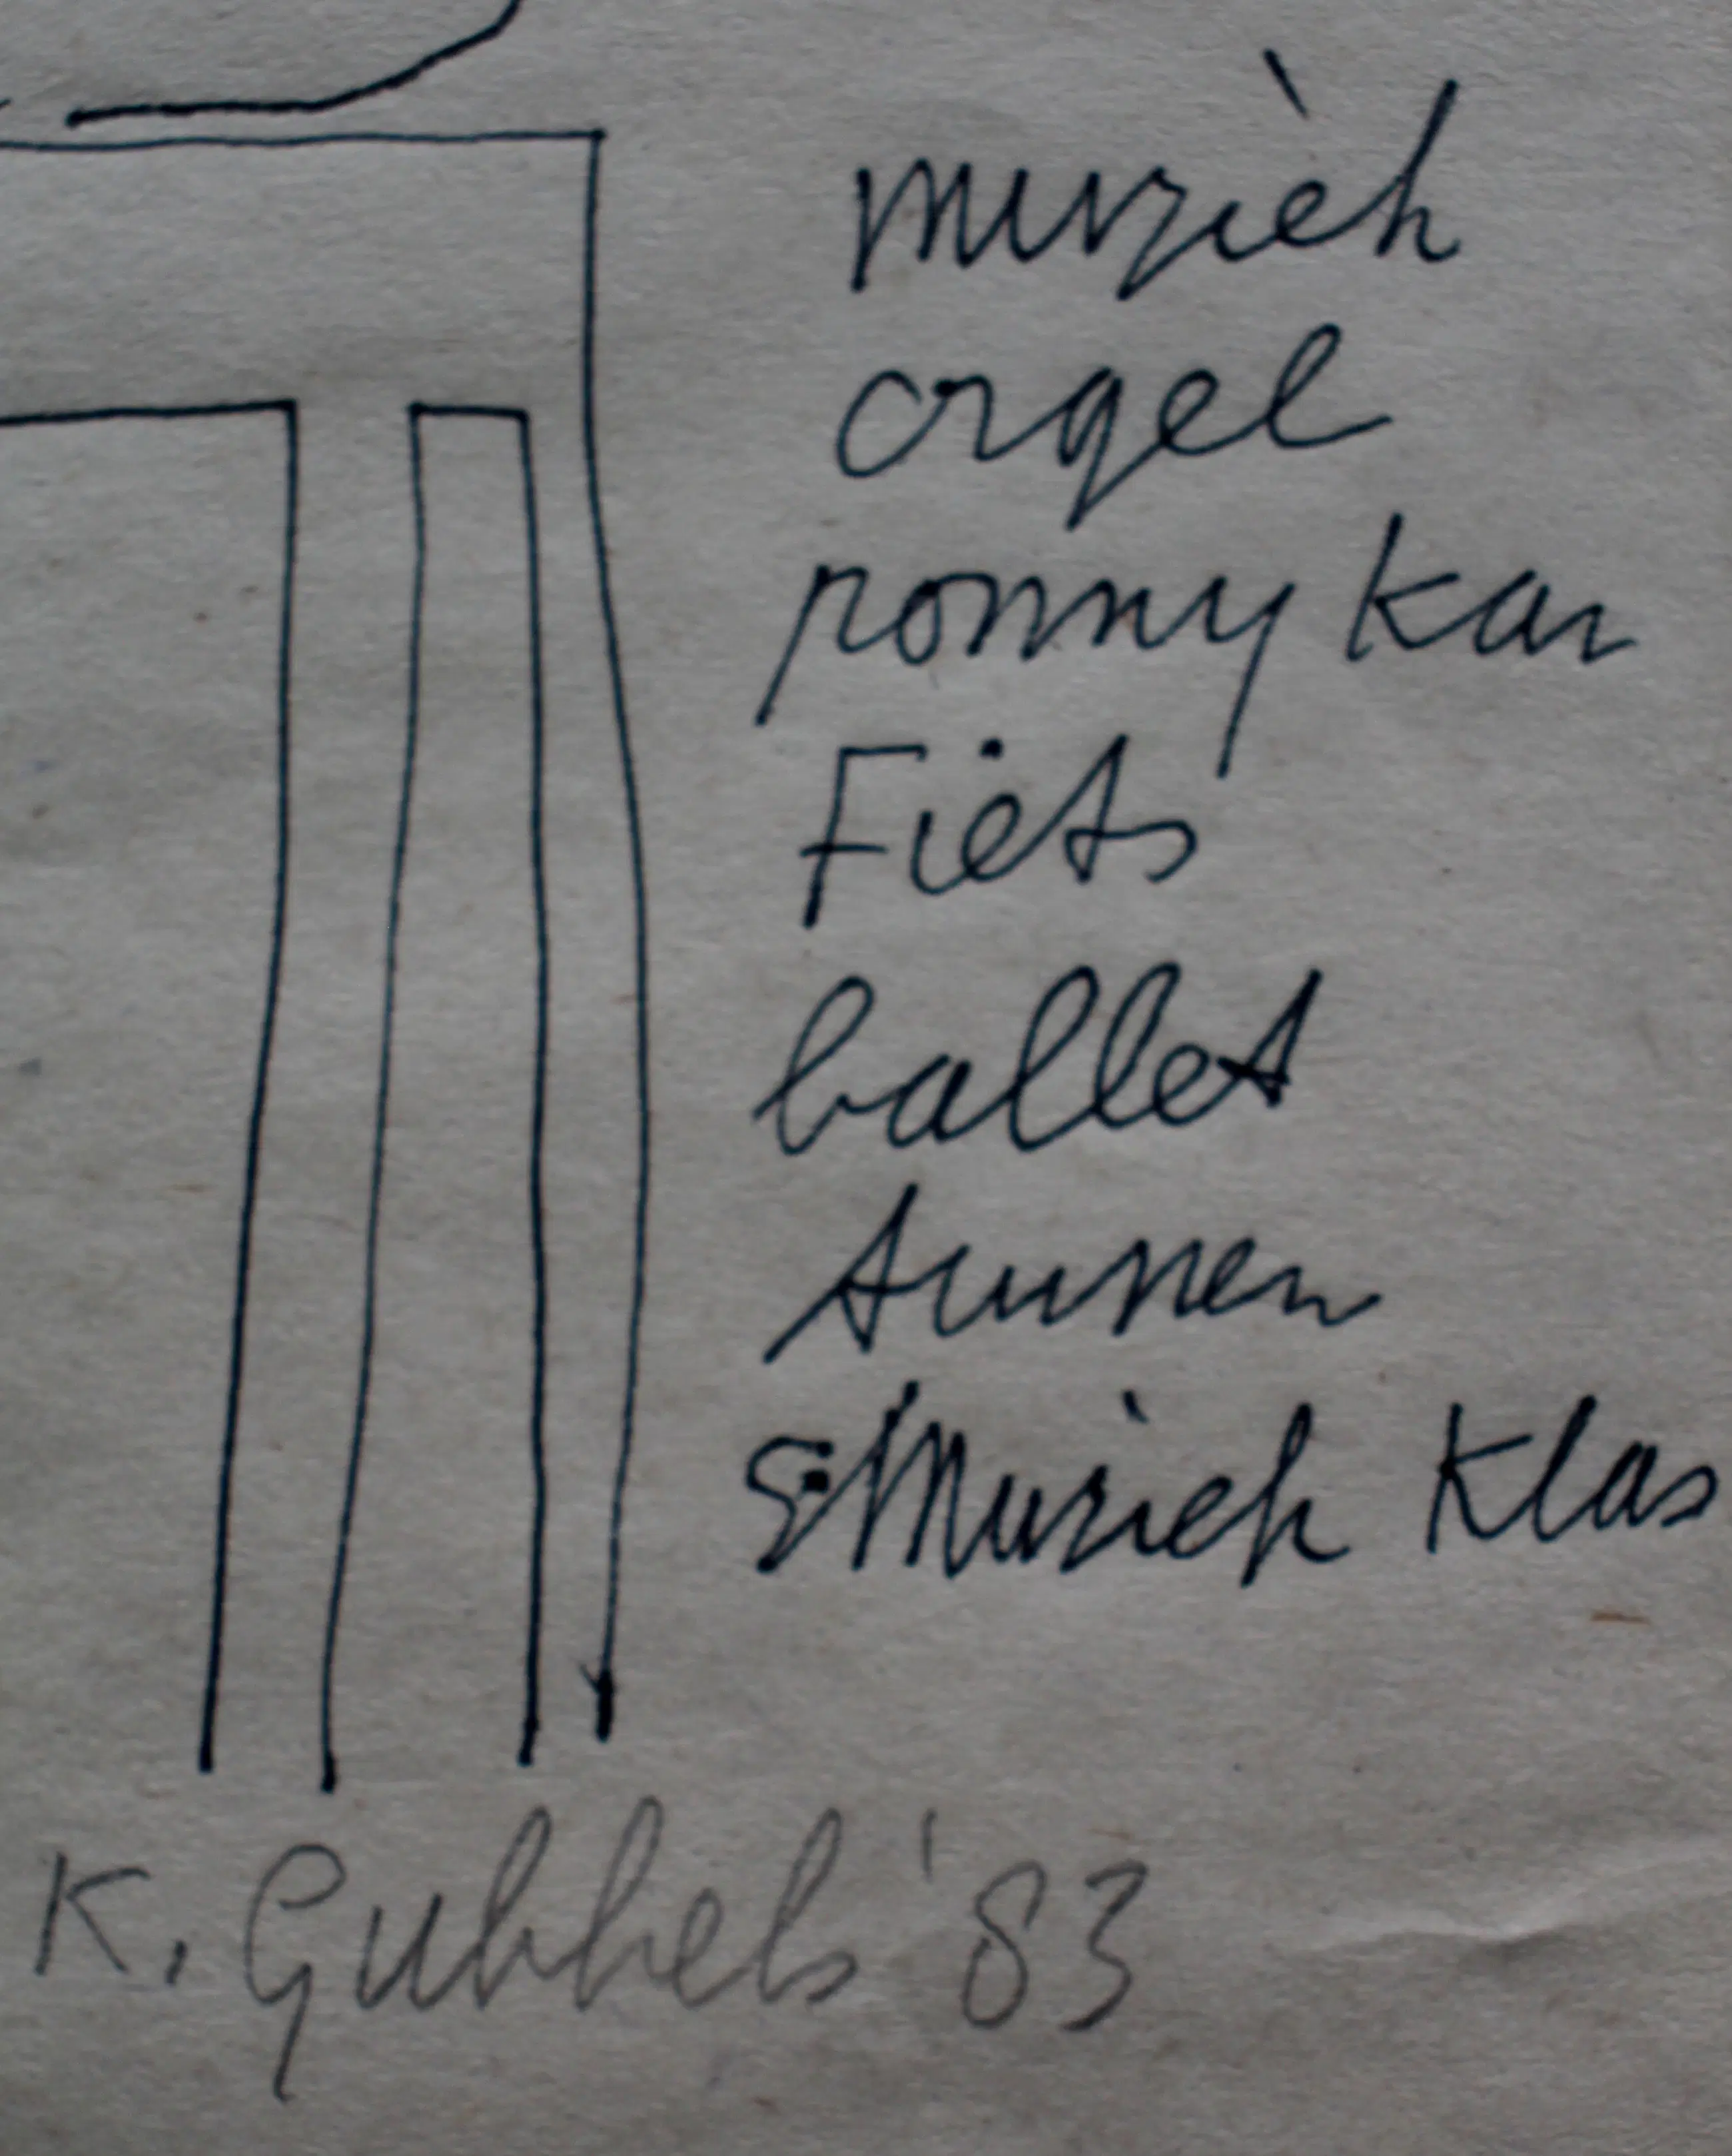 muziek
orgel
ponny kar
Fiets
ballet
turnen
Muziek Klas
K. Gubbels '83